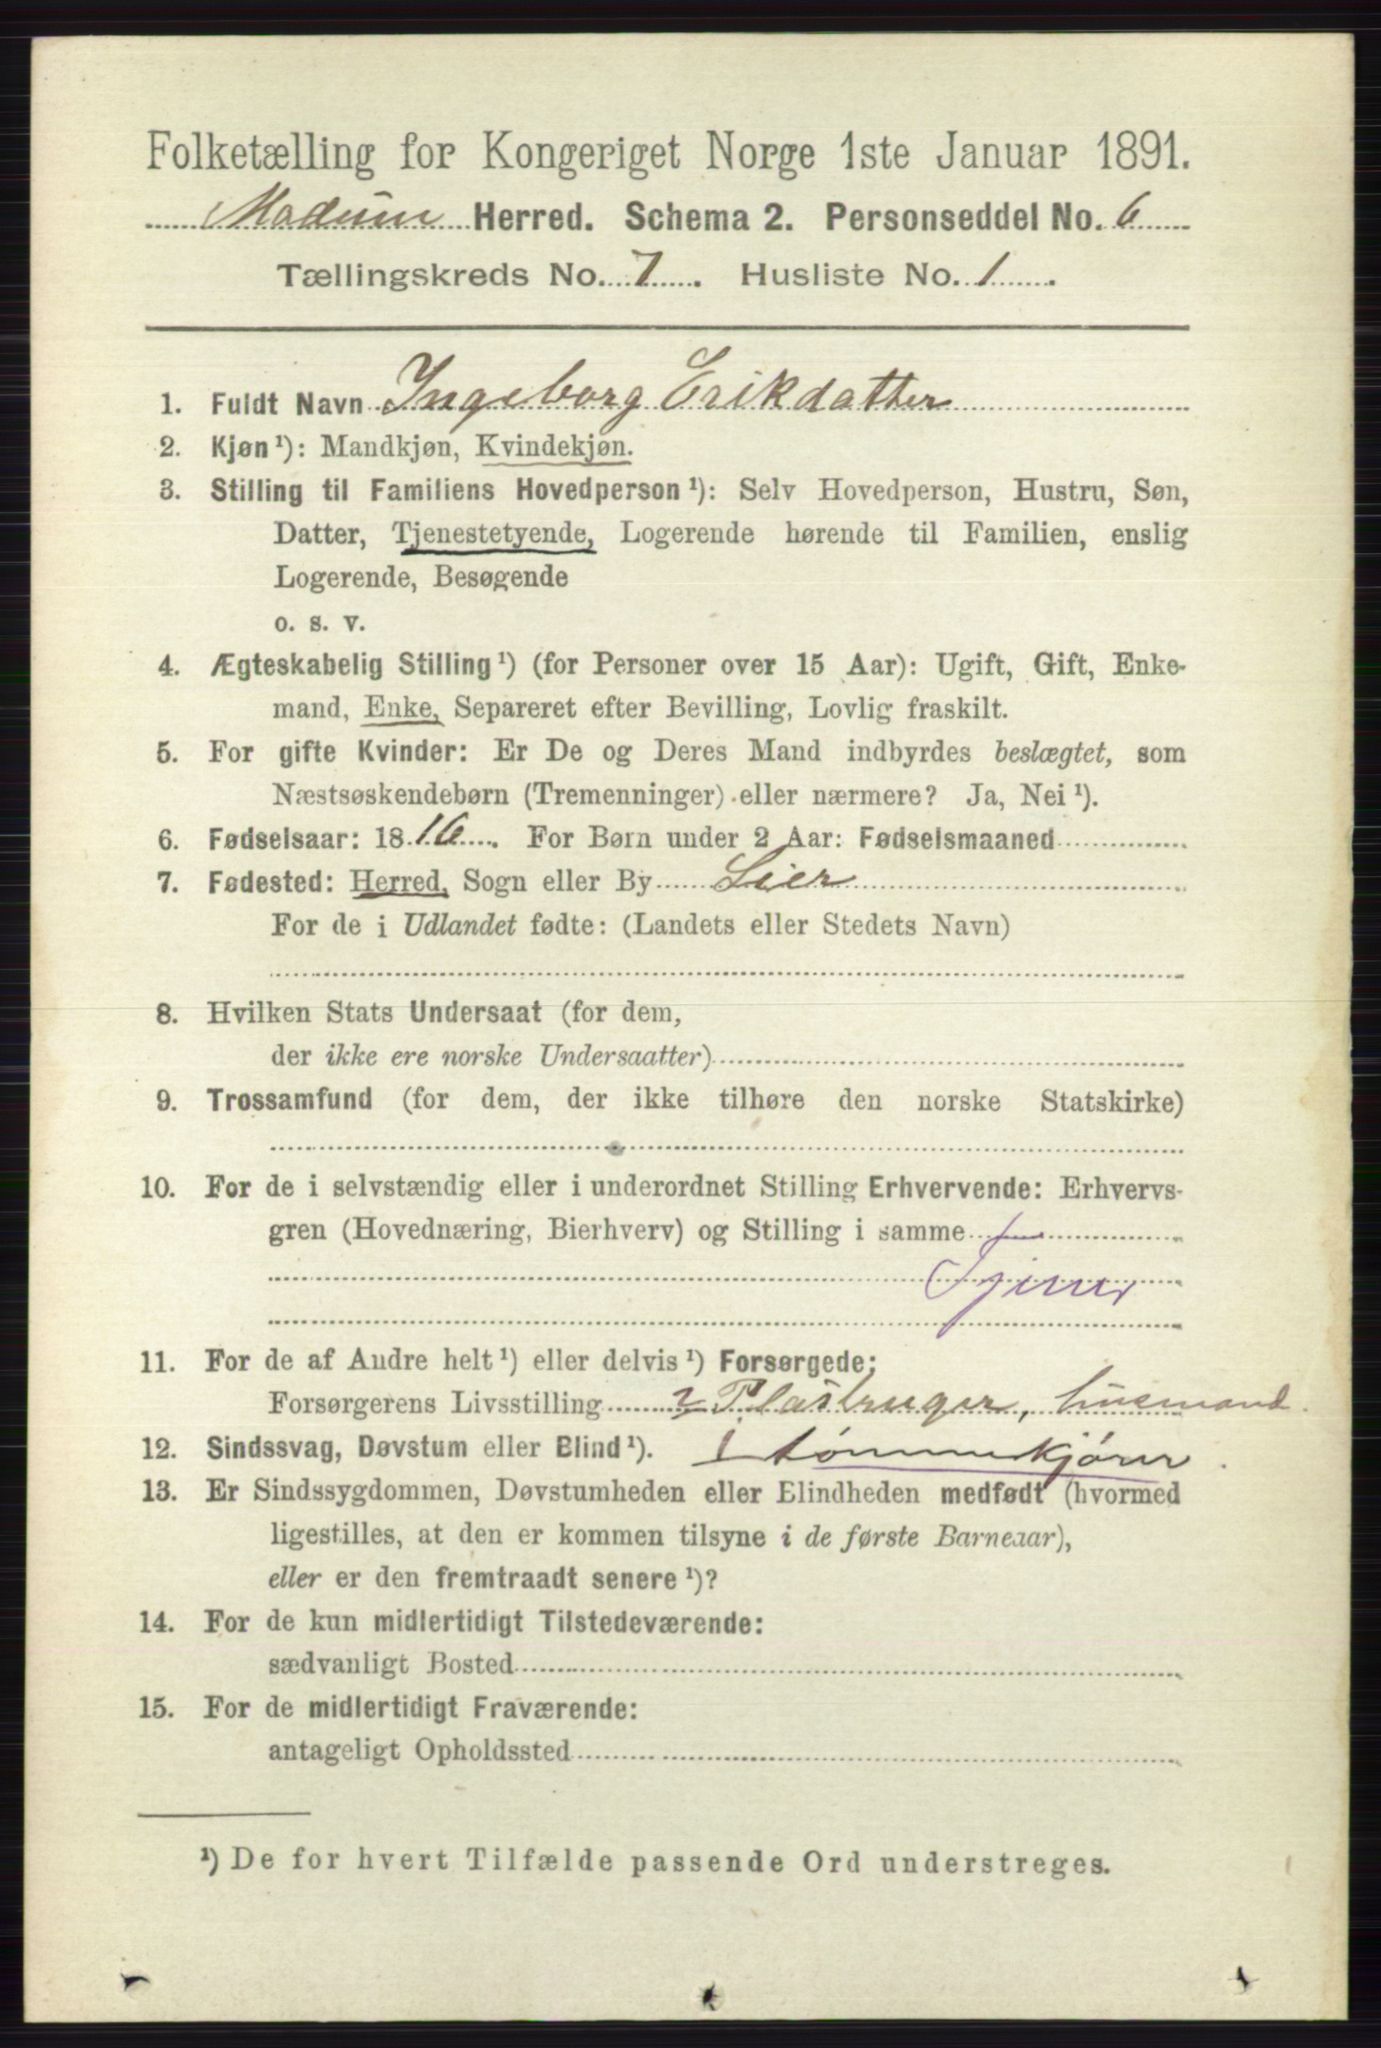 Folketælling for Kongeriget Norge 1ste Januar 1891.
Modum Herred. Schema 2. Personseddel No. 6
Tællingskreds No. 7. Husliste No. 1.
1. Fuldt Navn Ingeborg Erikdatter
2. Kjøn ¹): Mandkjøn, Kvindekjøn.
3. Stilling til Familiens Hovedperson ¹): Selv Hovedperson, Hustru, Søn,
Datter, Tjenestetyende, Logerende hørende til Familien, enslig
Logerende, Besøgende
o. s. v.
4. Ægteskabelig Stilling ¹) (for Personer over 15 Aar): Ugift, Gift, Enke-
mand, Enke, Separeret efter Bevilling, Lovlig fraskilt.
5. For gifte Kvinder: Er De og Deres Mand indbyrdes beslægtet, som
Næstsøskendebørn (Tremenninger) eller nærmere? Ja, Nei ¹).
6. Fødselsaar: 1816. For Børn under 2 Aar: Fødselsmaaned
7. Fødested: Herred, Sogn eller By Lier
For de i Udlandet fødte: (Landets eller Stedets Navn)
8. Hvilken Stats Undersaat (for dem,
der ikke ere norske Undersaatter)
9. Trossamfund (for dem, der ikke tilhøre den norske Statskirke)
10. For de i selvstændig eller i underordnet Stilling Erhvervende: Erhvervs-
gren (Hovednæring, Bierhverv) og Stilling i samme
Tjener
11. For de af Andre helt ¹) eller delvis ¹) Forsørgede:
Forsørgerens Livsstilling Pladsbruger, husmand
12. Sindssvag, Døvstum eller Blind ¹). tømmerkjører
13. Er Sindssygdommen, Døvstumheden eller Blindheden medfødt (hvormed
ligestilles, at den er kommen tilsyne i de første Barneaar),
eller er den fremtraadt senere ¹)?
14. For de kun midlertidigt Tilstedeværende:
sædvanligt Bosted
15. For de midlertidigt Fraværende:
antageligt Opholdssted
¹) De for hvert Tilfælde passende Ord understreges.